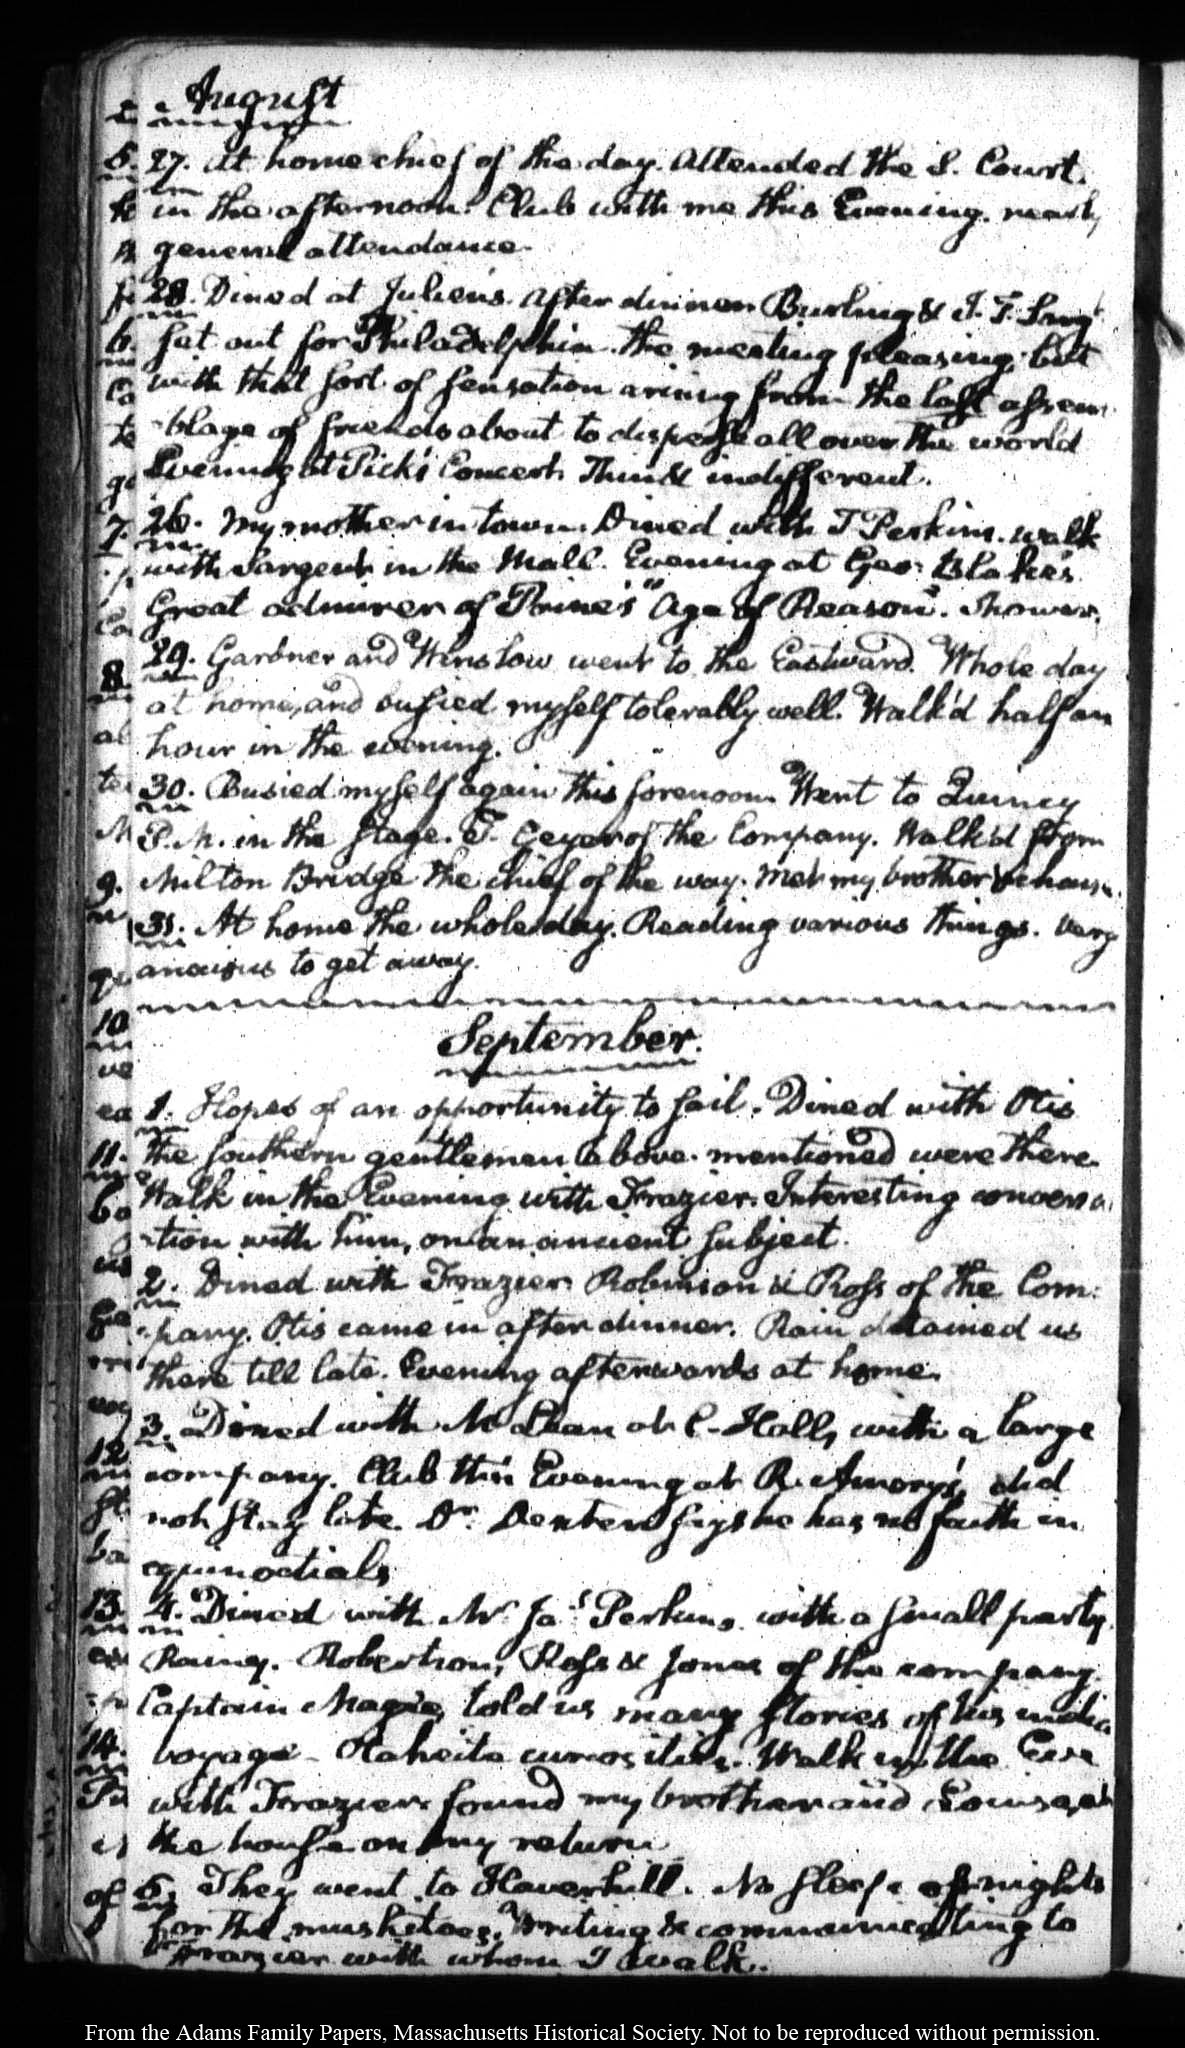 August
27. At home chief of the day. Attended the S. Court.
in the afternoon. Club with me this Evening. nearly
general attendance.
28. Dined at Julien's. After dinner Burling &
set out for Philadelphia. the meeting pleasing; but
with that sort of sensation arising from the last assem-
-blage of friends about to disperse all over the world
Evening at Pick's Concert. Thin & indifferent.
26. My mother in town. Dined with T Perkins. walk
with Sargent in the Mall. Evening at Geo: Blake's.
Great admirer of Paine's "Age of Reason". Shower.
29. Gardner and Winslow went to the Eastward. Whole day
at home, and busied myself tolerably well. Walk'd half an
hour in the evening.
30. Busied myself again this forenoon. Went to Quincy
P.M. in the stage. of the Company. Walk'd from
Milton Bridge the chief of the way. Met my brother
31. At home the whole day. Reading various things. very
anxious to get away.
September.
1. Hopes of an opportunity to sail. Dined with Otis
the southern gentlemen above mentioned were there.
Walk in the Evening with Frazier. Interesting conversa
-tion with him, on an ancient subject.
2. Dined with Frazier. Robinson & Ross of the Com:
-pany. Otis came in after dinner. Rain detained us
there till late. Evening afterwards at home.
3. Dined with McLean at C-Hall, with a large
company. Club this Evening at R. Amory's, did
not stay late. Dr. Dexter says he has no faith in
equinoctials
4. Dined with Mr. Jas. Perkins with a small party.
Rainy. Robertson, Ross & Jones of the company.
Captain Magee, told us many stories of his
voyage - Otaheite curiosities. Walk in the Eve
with Frazier found my brother and Louisa at
the house on my return
5. They went to Haverhill. No sleep o' nights
for the musketoes. Writing & communicating to
Frazier with whom I walk.
From the Adams Family Papers, Massachusetts Historical Society. Not to be reproduced without permission.